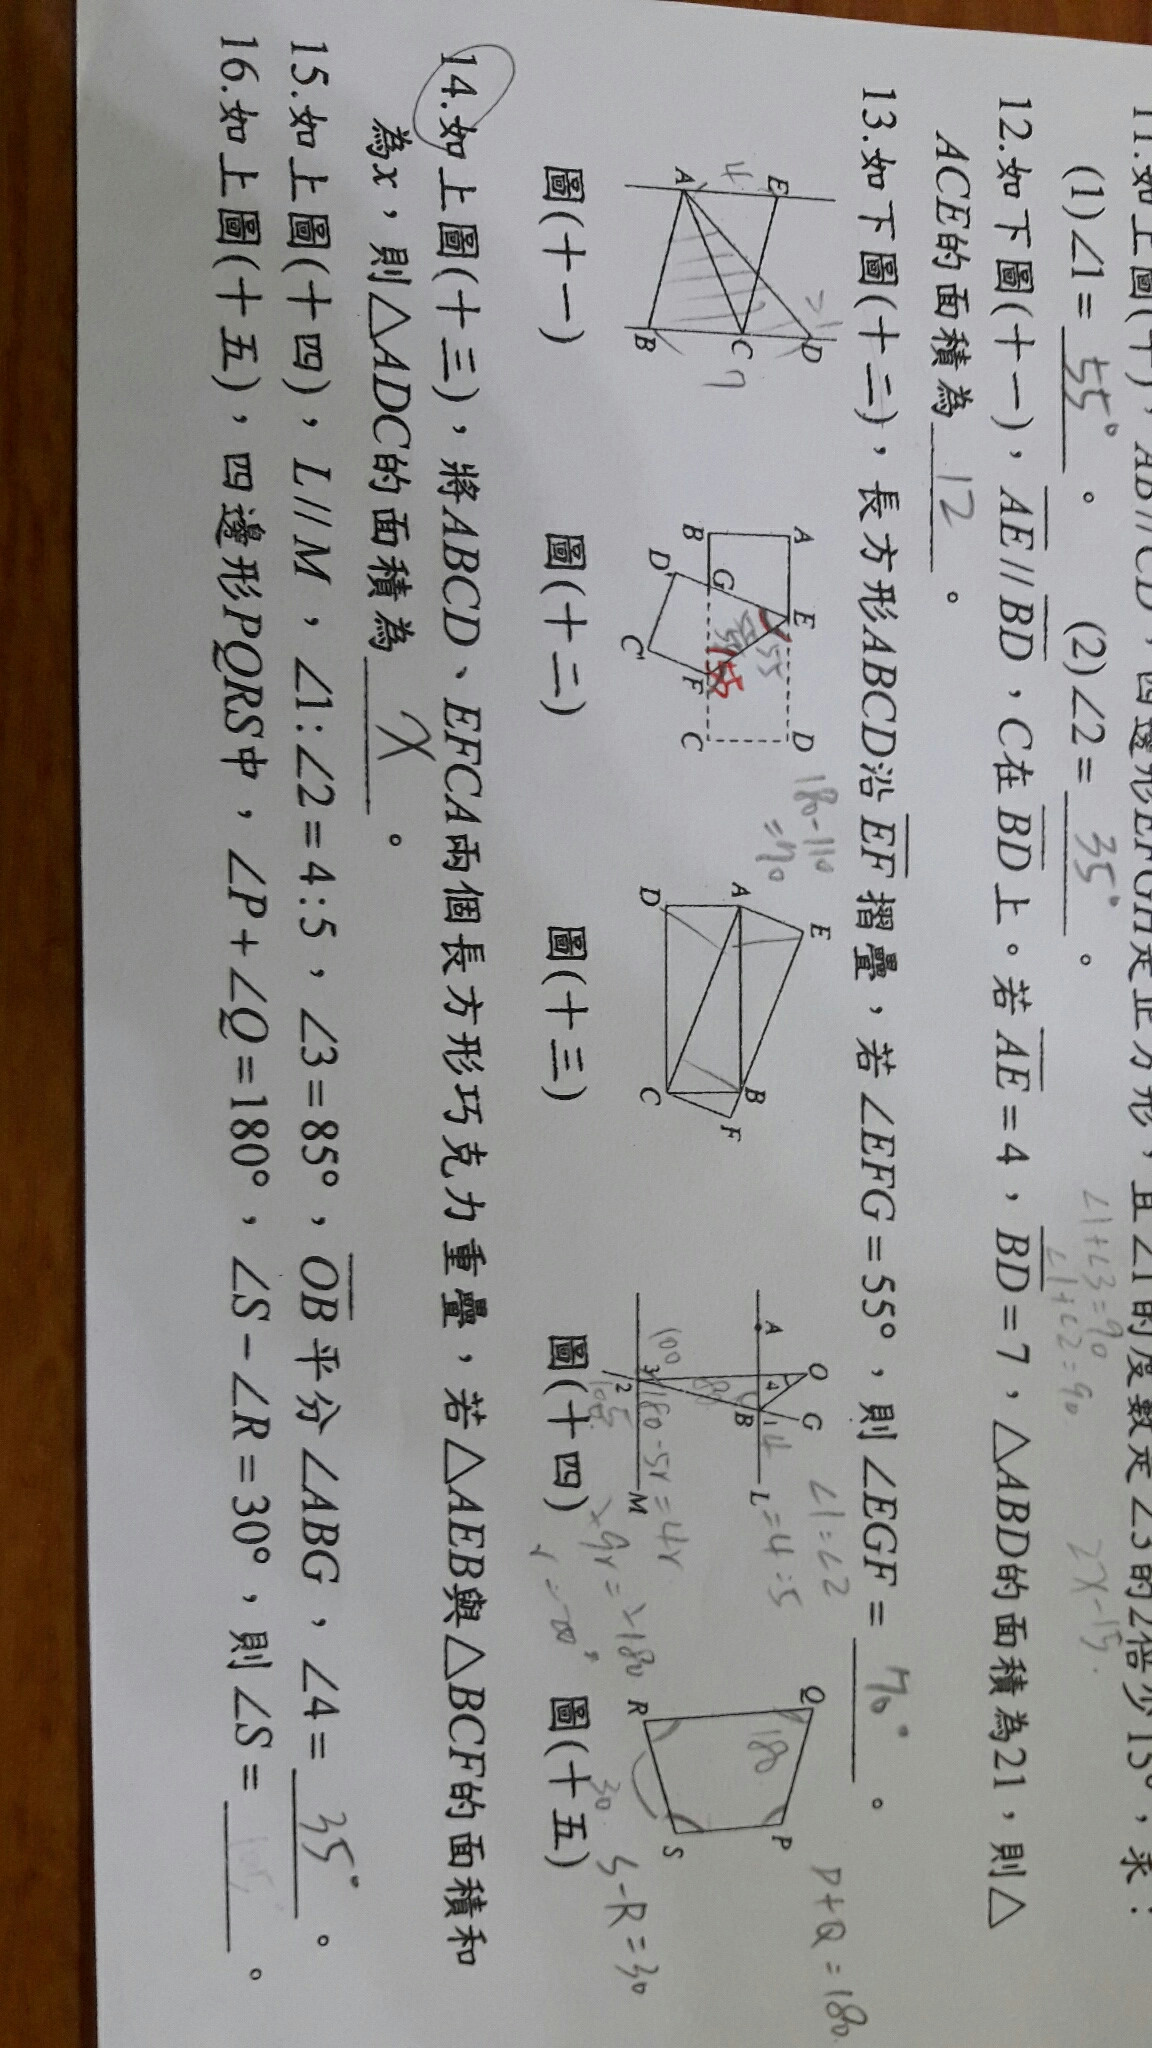 11.如上圖(十)，AB//CD，四邊形EFGH是正方形，且∠1的度數是∠3的2倍少15°，求：
(1)∠1=55°。 (2)∠2=35°。
∠1+∠3=90
∠1+∠2=90
2X-15.
12.如下圖(十一)，AE//BD，C在BD上。若AE=4，BD=7，△ABD的面積為21，則△
ACE的面積為12。
13.如下圖(十二)，長方形ABCD沿EF摺疊，若∠EFG=55°，則∠EGF=70°。
E
D
A
C
B
4
7
圖(十一)
A
E
D
B
G
F
C
D'
C'
55
55
180-110
=70
圖(十二)
E
A
B
F
D
C
圖(十三)
O
G
A
4
1
B
L
3
2
M
100
80
4
∠1=∠2
=4:5
圖(十四)
Q
P
R
S
180
30
P+Q=180
S-R=30
圖(十五)
14.如上圖(十三)，將ABCD、EFCA兩個長方形巧克力重疊，若△AEB與△BCF的面積和
為x，則△ADC的面積為X。
15.如上圖(十四)，L//M，∠1:∠2=4:5，∠3=85°，OB平分∠ABG，∠4=35°。
16.如上圖(十五)，四邊形PQRS中，∠P+∠Q=180°，∠S-∠R=30°，則∠S=105。